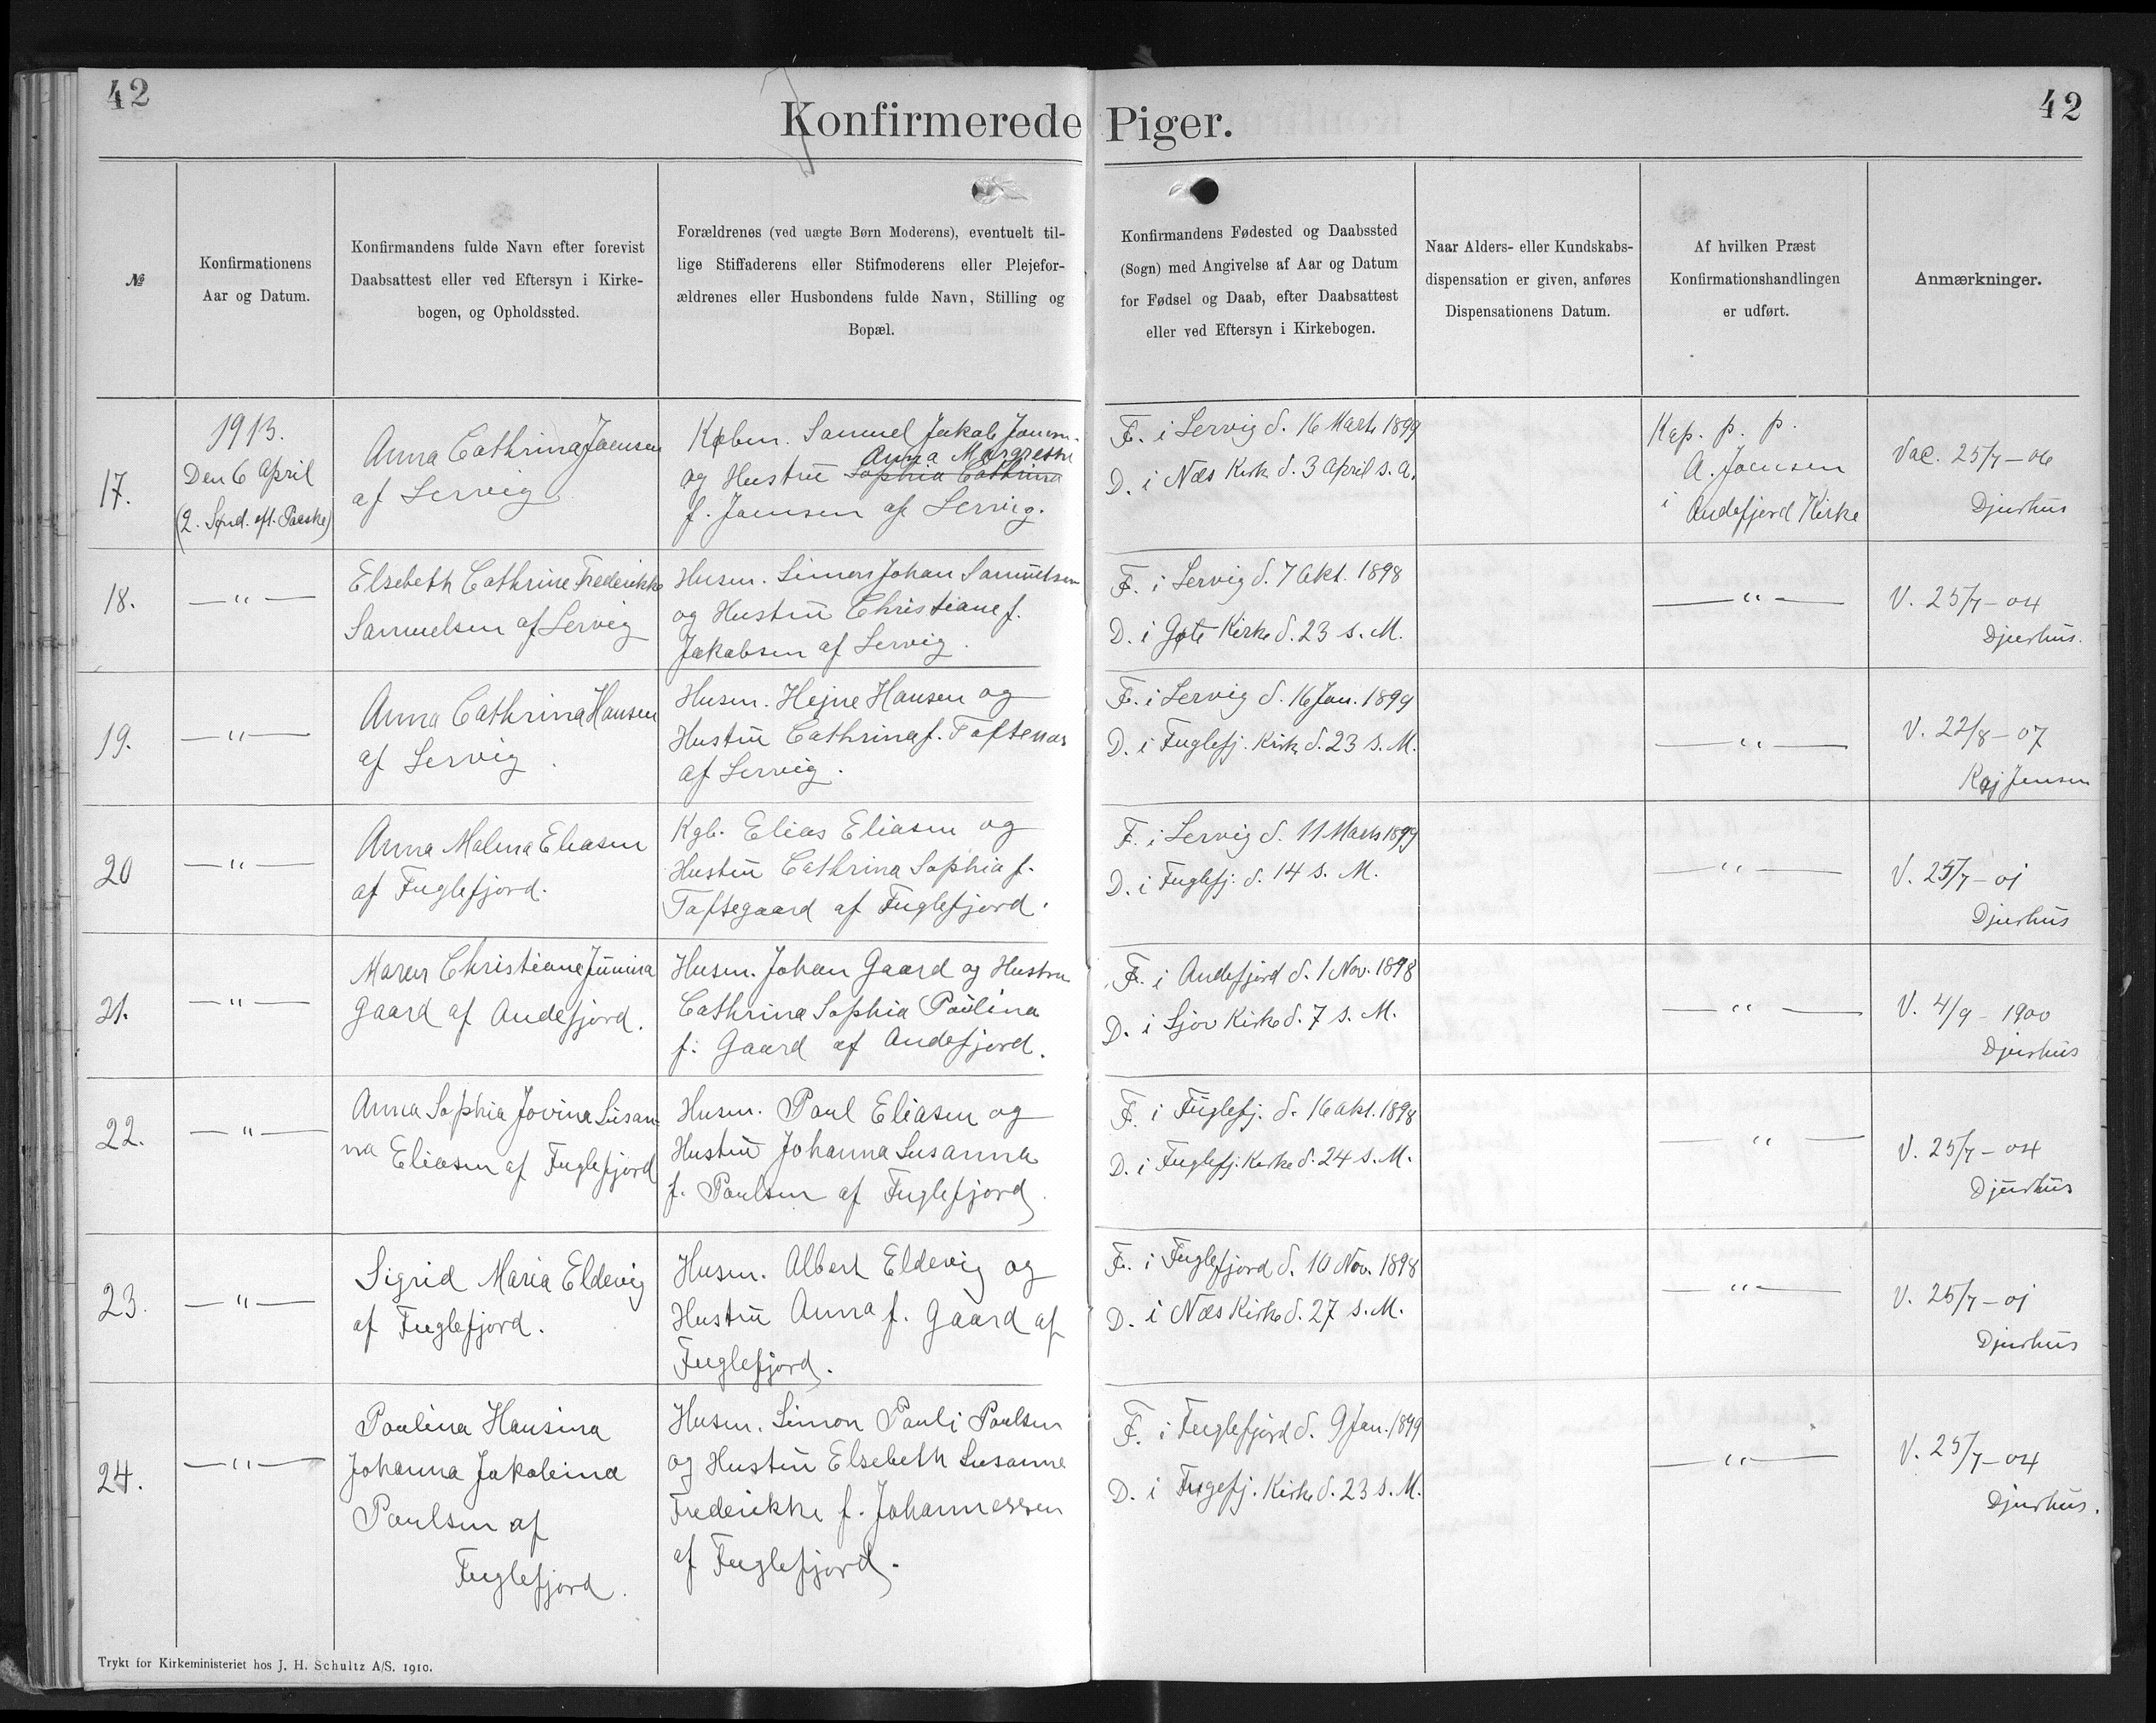 42
42
Konfirmerede Piger.
№
Konfirmationens
Aar og Datum.
Konfirmandens fulde Navn efter forevist
Daabsattest eller ved Eftersyn i Kirke-
bogen, og Opholdssted.
Forældrenes (ved uægte Børn Moderens), eventuelt til-
lige Stiffaderens eller Stifmoderens eller Plejefor-
ældrenes eller Husbondens fulde Navn, Stilling og
Bopæl.
Konfirmandens Fødested og Daabssted
(Sogn) med Angivelse af Aar og Datum
for Fødsel og Daab, efter Daabsattest
eller ved Eftersyn i Kirkebogen.
Naar Alders- eller Kundskabs-
dispensation er given, anføres
Dispensationens Datum.
Af hvilken Præst
Konfirmationshandlingen
er udført.
Anmærkninger.
17.
1913.
Den 6 April
(2. Sønd. eft. Paaske)
Anna Cathrina Joensen
af Lervig
Købm. Samuel Jakob Joensen
Anna Margretha
og Hustru Sophia Cathrina
f. Joensen af Lervig.
F. i Lervig d. 16 Marts 1899
D. i Næs Kirke d. 3 April s. A.
Kap. p. p.
A. Joensen
i Andefjord Kirke
Vac. 25/7 - 06
Djurhus
18.
— " —
Elsebeth Cathrine Frederikke
Samuelsen af Lervig
Husm. Simon Johan Samuelsen
og Hustru Christiane f.
Jakobsen af Lervig.
F. i Lervig d. 7 Okt. 1898
D. i Gøte Kirke d. 23 s. M.
— " —
V. 25/7 - 04
Djurhus.
19.
— " —
Anna Cathrina Hansen
af Lervig.
Husm. Hejne Hansen og
Hustru Cathrina f. Toftenæs
af Lervig.
F. i Lervig d. 16 Jan. 1899
D. i Fuglefj. Kirke d. 23 s. M.
— " —
V. 22/8 - 07
Kaj Jensen
20
— " —
Anna Malena Eliasen
af Fuglefjord.
Kgb. Elias Eliasen og
Hustru Cathrina Sophia f.
Toftegaard af Fuglefjord.
F. i Lervig d. 11 Marts 1899
D. i Fuglefj. d. 14 s. M.
— " —
V. 25/7 - 01
Djurhus
21.
— " —
Maren Christiane Junina
Gaard af Andefjord.
Husm. Johan Gaard og Hustru
Cathrina Sophia Paulina
f. Gaard af Andefjord.
F. i Andefjord d. 1 Nov. 1898
D. i Sjov Kirke d. 7 s. M.
— " —
V. 4/9 - 1900
Djurhus
22.
— " —
Anna Sophia Jovina Susan-
na Eliasen af Fuglefjord
Husm. Poul Eliasen og
Hustru Johanna Susanna
f. Poulsen af Fuglefjord.
F. i Fuglefj. d. 16 Okt. 1898
D. i Fuglefj. Kirke d. 24 s. M.
— " —
V. 25/7 - 04
Djurhus
23.
— " —
Sigrid Maria Eldevig
af Fuglefjord.
Husm. Albert Eldevig og
Hustru Anna f. Gaard af
Fuglefjord.
F. i Fuglefjord d. 10 Nov. 1898
D. i Næs Kirke d. 27 s. M.
— " —
V. 25/7 - 01
Djurhus
24.
— " —
Poulina Hansina
Johanna Jakobina
Poulsen af
Fuglefjord.
Husm. Simon Pauli Poulsen
og Hustru Elsebeth Susanne
Frederikke f. Johannessen
af Fuglefjord.
F. i Fuglefjord d. 9 Jan. 1899
D. i Fugefj. Kirke d. 23 s. M.
— " —
V. 25/7 - 04
Djurhus.
Trykt for Kirkeministeriet hos J. H. Schultz A/S. 1910.